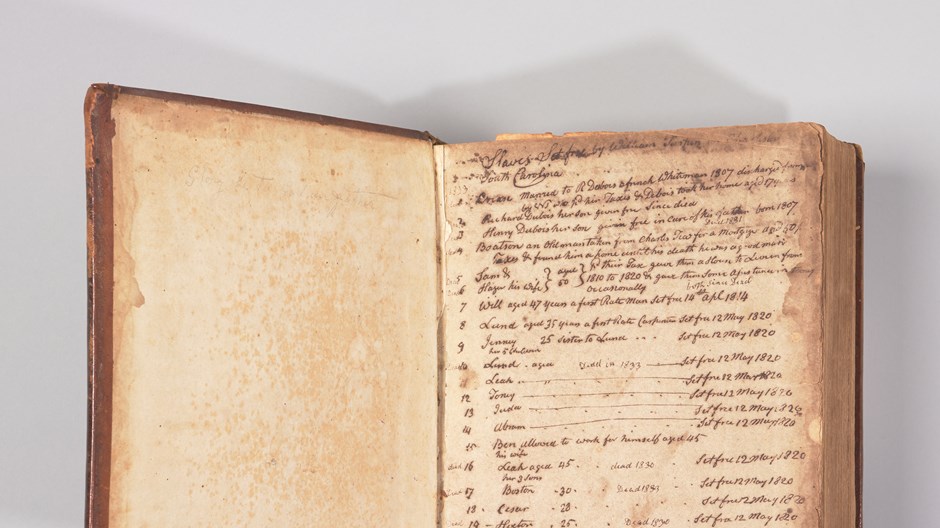 Slaves Set free by William Turpin
South Carolina
1 Married to R Dubois a french Whiteman 1807 discharged from
Taxes & Debois took her home aged
2 Richard Dubois her son given free Since died
3 Henry Dubois her son given free in care of his father born 1807
4 Boatson an Old man taken from Charles for a Mortgage
Taxes & found him a home until his death he was a good man
5 Sam & } aged } their Tax gave them a House to Live in from
6 Hagar his wife } 60 } 1810 to 1820 & gave them Some assistance in
Occasionally both Since Died
7 Will aged 47 years a first Rate Man Set free 14th Apl 1814
8 Lund aged 35 years a first Rate Carpenter Set free 12 May 1820
9 Jenney 25 Sister to Lund Set free 12 May 1820
her 5 Children
10 Lund aged Died in 1833 Set free 12 May 1820
11 Leah Set free 12 May 1820
12 Toney Set free 12 May 1820
13 Juda Set free 12 May 1820
14 Abram Set free 12 May 1820
15 Ben allowed to work for himself aged 45
his wife
16 Leah aged 45 dead 1830 Set free 12 May 1820
her 3 Sons
17 Boston 30 Set free 12 May 1820
18 Cesar 28 Set free 12 May 1820
19 25 Set free 12 May 1820